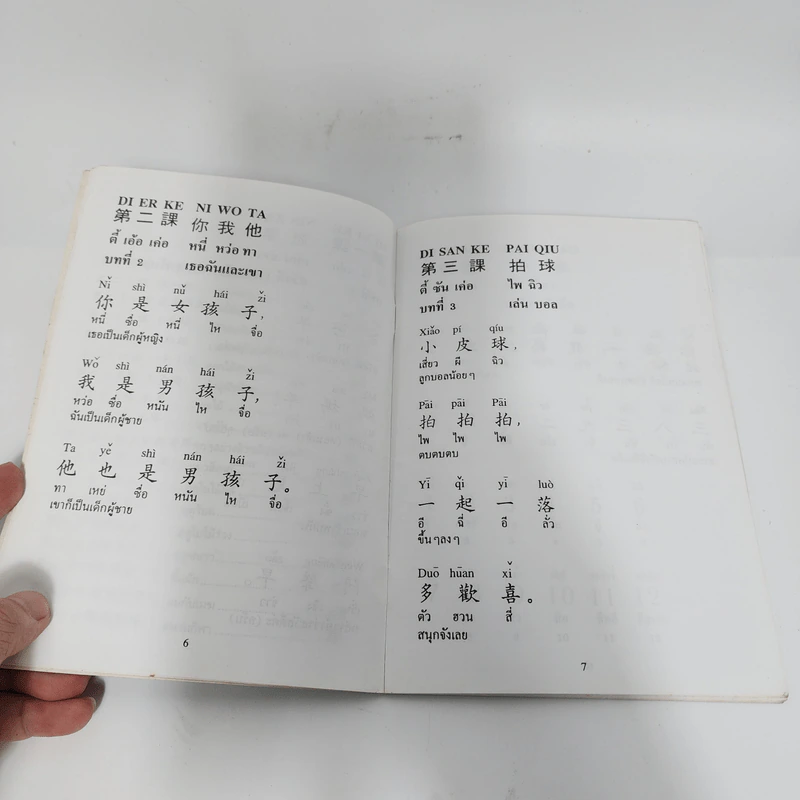 DI ER KE NI WO TA
第二課 你我他
ตี้ เอ้อ เค่อ หนี่ หว่อ ทา
บทที่ 2 เธอฉันและเขา
Nǐ shì nǔ hái zǐ
你是女孩子,
หนี่ ซื่อ หนี่ ไห จื่อ
เธอเป็นเด็กผู้หญิง
Wǒ shì nán hái zǐ
我是男孩子,
หว่อ ซื่อ หนัน ไห จื่อ
ฉันเป็นเด็กผู้ชาย
Ta yě shì nán hái zǐ
他也是男孩子。
ทา เหย่ ซื่อ หนัน ไห จื่อ
เขาก็เป็นเด็กผู้ชาย
6
DI SAN KE PAI QIU
第三課 拍球
ตี้ ซัน เค่อ ไพ ฉิว
บทที่ 3 เล่น บอล
Xiǎo pí qíu
小皮球,
เสี่ยว ผี ฉิว
ลูกบอลน้อยๆ
Pāi pāi Pāi
拍拍拍,
ไพ ไพ ไพ
ตบตบตบ
Yī qǐ yī luò
一起一落
อี ฉี่ อี ลั่ว
ขึ้นๆลงๆ
Duō hūan xǐ
多歡喜。
ตัว ฮวน สี่
สนุกจังเลย
7